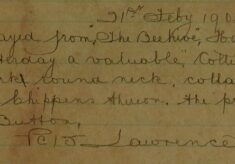 21st Feby 190
ayed from, "The Beehive",
terday a valuable, Collie
round neck, colla
Chippens thereon. The pr
Button,
P.C. 15 Lawrence